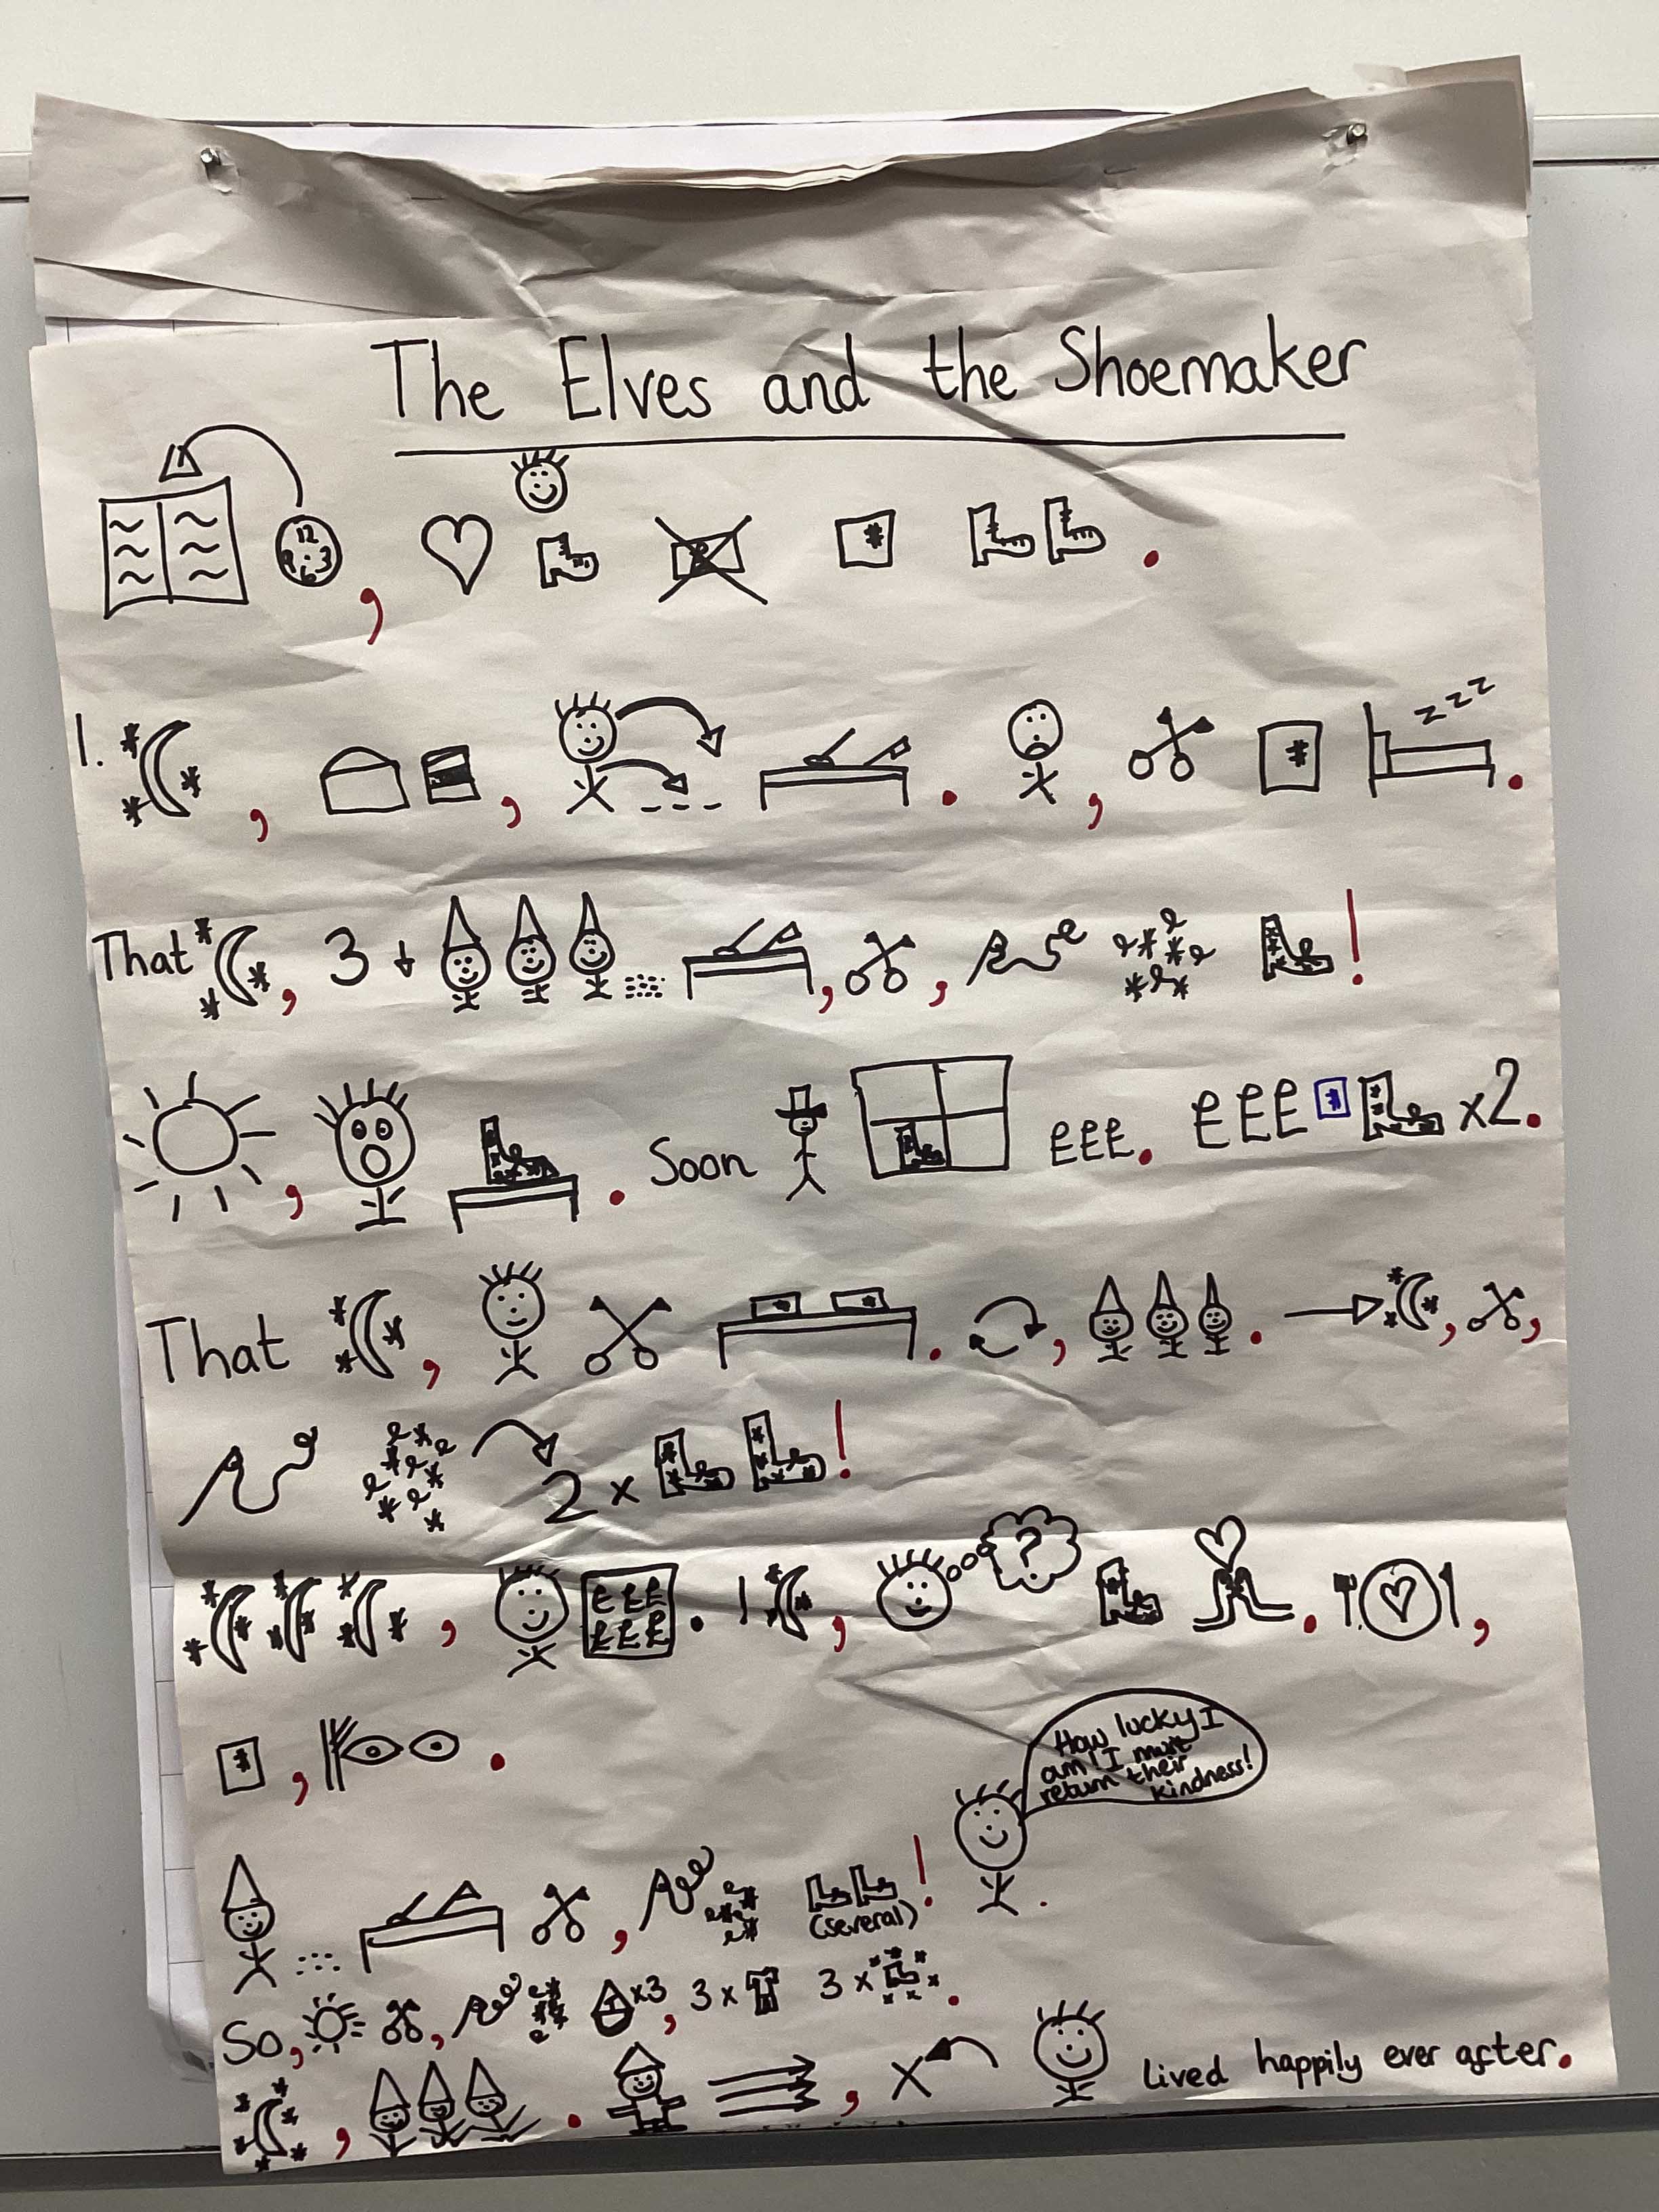 The Elves and the Shoemaker
12 3 6 9
1.
zzz
That, 3
!
. Soon £££. £££ x2.
That
2 x !
£££ £££. 1 ?
How lucky I
am! I must
return their
kindness!
(several)!
So, x3, 3 x 3 x.
x lived happily ever after.